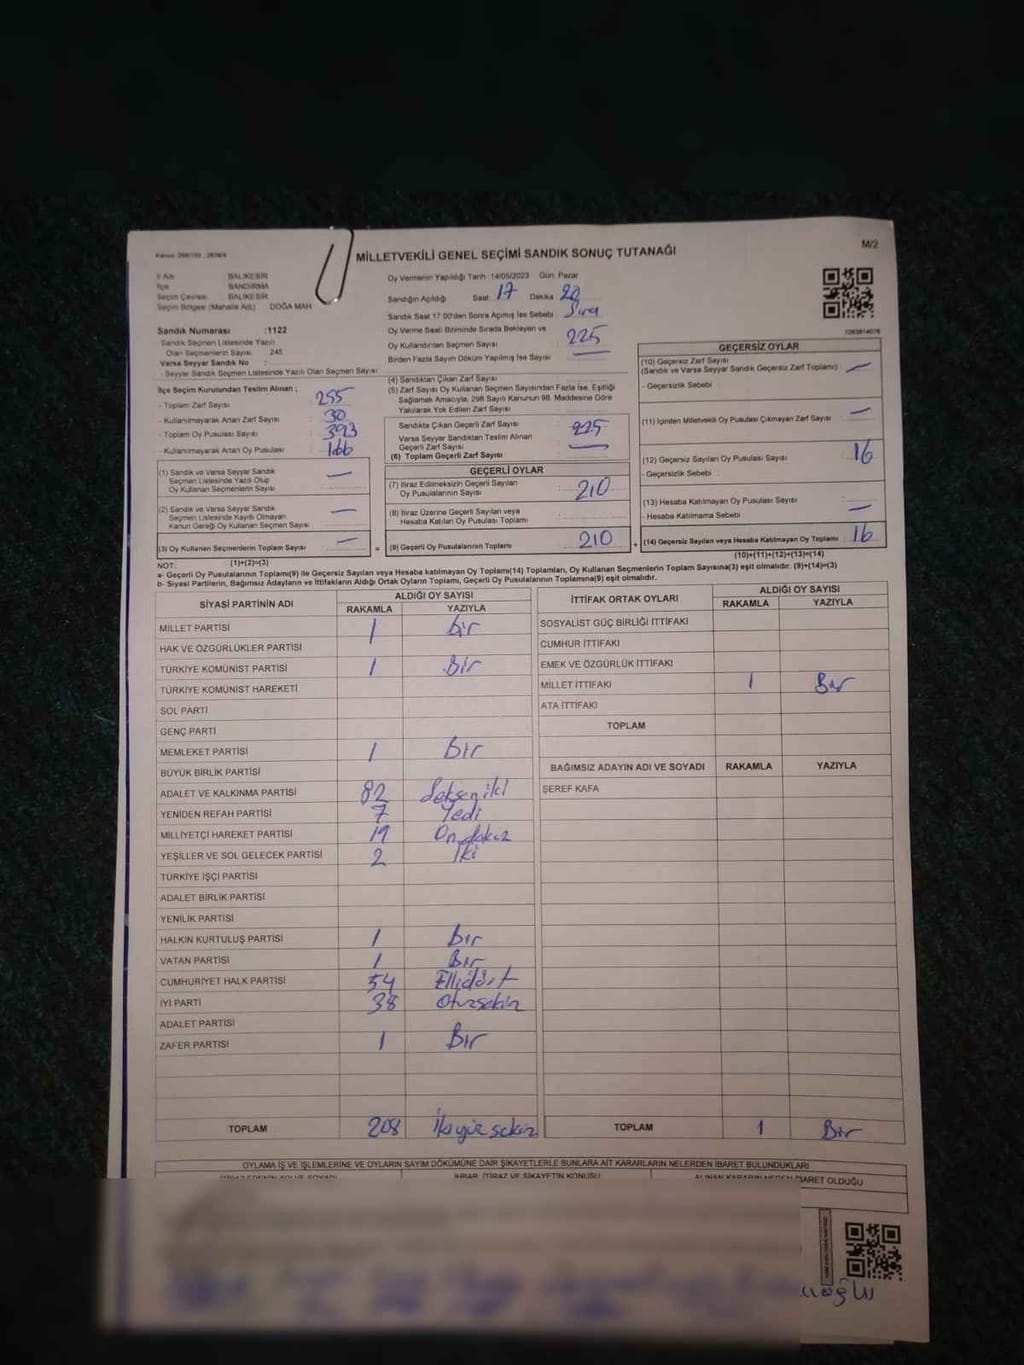 MİLLETVEKİLİ GENEL SEÇİMİ SANDIK SONUÇ TUTANAĞI
M/2
İl Adı BALIKESİR
İlçe BANDIRMA
Seçim Çevresi BALIKESİR
Seçim Bölgesi (Mahalle Adı) DOĞA MAH
Sandık Numarası :1122
Sandık Seçmen Listesinde Yazılı
Olan Seçmenlerin Sayısı 245
Varsa Seyyar Sandık No :
- Seyyar Sandık Seçmen Listesinde Yazılı Olan Seçmen Sayısı
Oy Vermenin Yapıldığı Tarih :14/05/2023 Gün: Pazar
Sandığın Açıldığı Saat: 17 Dakika 20
Sandık Saat 17:00'den Sonra Açılmış İse Sebebi Sıra
Oy Verme Saati Bitiminde Sırada Bekleyen ve
Oy Kullandırılan Seçmen Sayısı 225
Birden Fazla Sayım Döküm Yapılmış İse Sayısı —
İlçe Seçim Kurulundan Teslim Alınan ;
- Toplam Zarf Sayısı 255
- Kullanılmayarak Artan Zarf Sayısı 30
- Toplam Oy Pusulası Sayısı 393
- Kullanılmayarak Artan Oy Pusulası 166
(1) Sandık ve Varsa Seyyar Sandık
Seçmen Listesinde Yazılı Olup
Oy Kullanan Seçmenlerin Sayısı —
(2) Sandık ve Varsa Seyyar Sandık
Seçmen Listesinde Kayıtlı Olmayan
Kanun Gereği Oy Kullanan Seçmen Sayısı —
(3) Oy Kullanan Seçmenlerin Toplam Sayısı —
(1)+(2)=(3)
(4) Sandıktan Çıkan Zarf Sayısı
(5) Zarf Sayısı Oy Kullanan Seçmen Sayısından Fazla İse, Eşitliği
Sağlamak Amacıyla, 298 Sayılı Kanunun 98. Maddesine Göre
Yakılarak Yok Edilen Zarf Sayısı
Sandıkta Çıkan Geçerli Zarf Sayısı 225
Varsa Seyyar Sandıktan Teslim Alınan
Geçerli Zarf Sayısı —
(6) Toplam Geçerli Zarf Sayısı
GEÇERLİ OYLAR
(7) İtiraz Edilmeksizin Geçerli Sayılan
Oy Pusulalarının Sayısı 210
(8) İtiraz Üzerine Geçerli Sayılan veya
Hesaba Katılan Oy Pusulası Toplamı
= (9) Geçerli Oy Pusulalarının Toplamı 210
GEÇERSİZ OYLAR
(10) Geçersiz Zarf Sayısı
(Sandık ve Varsa Seyyar Sandık Geçersiz Zarf Toplamı) —
- Geçersizlik Sebebi :
(11) İçinden Milletvekili Oy Pusulası Çıkmayan Zarf Sayısı —
(12) Geçersiz Sayılan Oy Pusulası Sayısı 16
- Geçersizlik Sebebi :
(13) Hesaba Katılmayan Oy Pusulası Sayısı —
- Hesaba Katılmama Sebebi :
+ (14) Geçersiz Sayılan veya Hesaba Katılmayan Oy Toplamı 16
(10)+(11)+(12)+(13)=(14)
NOT:
a- Geçerli Oy Pusulalarının Toplamı(9) ile Geçersiz Sayılan veya Hesaba katılmayan Oy Toplamı(14) Toplamları, Oy Kullanan Seçmenlerin Toplam Sayısına(3) eşit olmalıdır. (9)+(14)=(3)
b- Siyasi Partilerin, Bağımsız Adayların ve İttifakların Aldığı Ortak Oyların Toplamı, Geçerli Oy Pusulalarının Toplamına(9) eşit olmalıdır.
SİYASİ PARTİNİN ADI ALDIĞI OY SAYISI
RAKAMLA YAZIYLA
MİLLET PARTİSİ 1 bir
HAK VE ÖZGÜRLÜKLER PARTİSİ
TÜRKİYE KOMÜNİST PARTİSİ 1 Bir
TÜRKİYE KOMÜNİST HAREKETİ
SOL PARTİ
GENÇ PARTİ
MEMLEKET PARTİSİ 1 bir
BÜYÜK BİRLİK PARTİSİ
ADALET VE KALKINMA PARTİSİ 82 Seksen iki
YENİDEN REFAH PARTİSİ 7 Yedi
MİLLİYETÇİ HAREKET PARTİSİ 19 On dokuz
YEŞİLLER VE SOL GELECEK PARTİSİ 2 İki
TÜRKİYE İŞÇİ PARTİSİ
ADALET BİRLİK PARTİSİ
YENİLİK PARTİSİ
HALKIN KURTULUŞ PARTİSİ 1 Bir
VATAN PARTİSİ 1 Bir
CUMHURİYET HALK PARTİSİ 54 Ellidört
İYİ PARTİ 38 Otuzsekiz
ADALET PARTİSİ
ZAFER PARTİSİ 1 Bir
TOPLAM 208 İkiyüz sekiz
İTTİFAK ORTAK OYLARI ALDIĞI OY SAYISI
RAKAMLA YAZIYLA
SOSYALİST GÜÇ BİRLİĞİ İTTİFAKI
CUMHUR İTTİFAKI
EMEK VE ÖZGÜRLÜK İTTİFAKI
MİLLET İTTİFAKI 1 Bir
ATA İTTİFAKI
TOPLAM
BAĞIMSIZ ADAYIN ADI VE SOYADI RAKAMLA YAZIYLA
ŞEREF KAFA
TOPLAM 1 Bir
OYLAMA İŞ VE İŞLEMLERİNE VE OYLARIN SAYIM DÖKÜMÜNE DAİR ŞİKAYETLERLE BUNLARA AİT KARARLARIN NELERDEN İBARET BULUNDUKLARI
İHBAR, İTİRAZ VE ŞİKAYETİN KONUSU